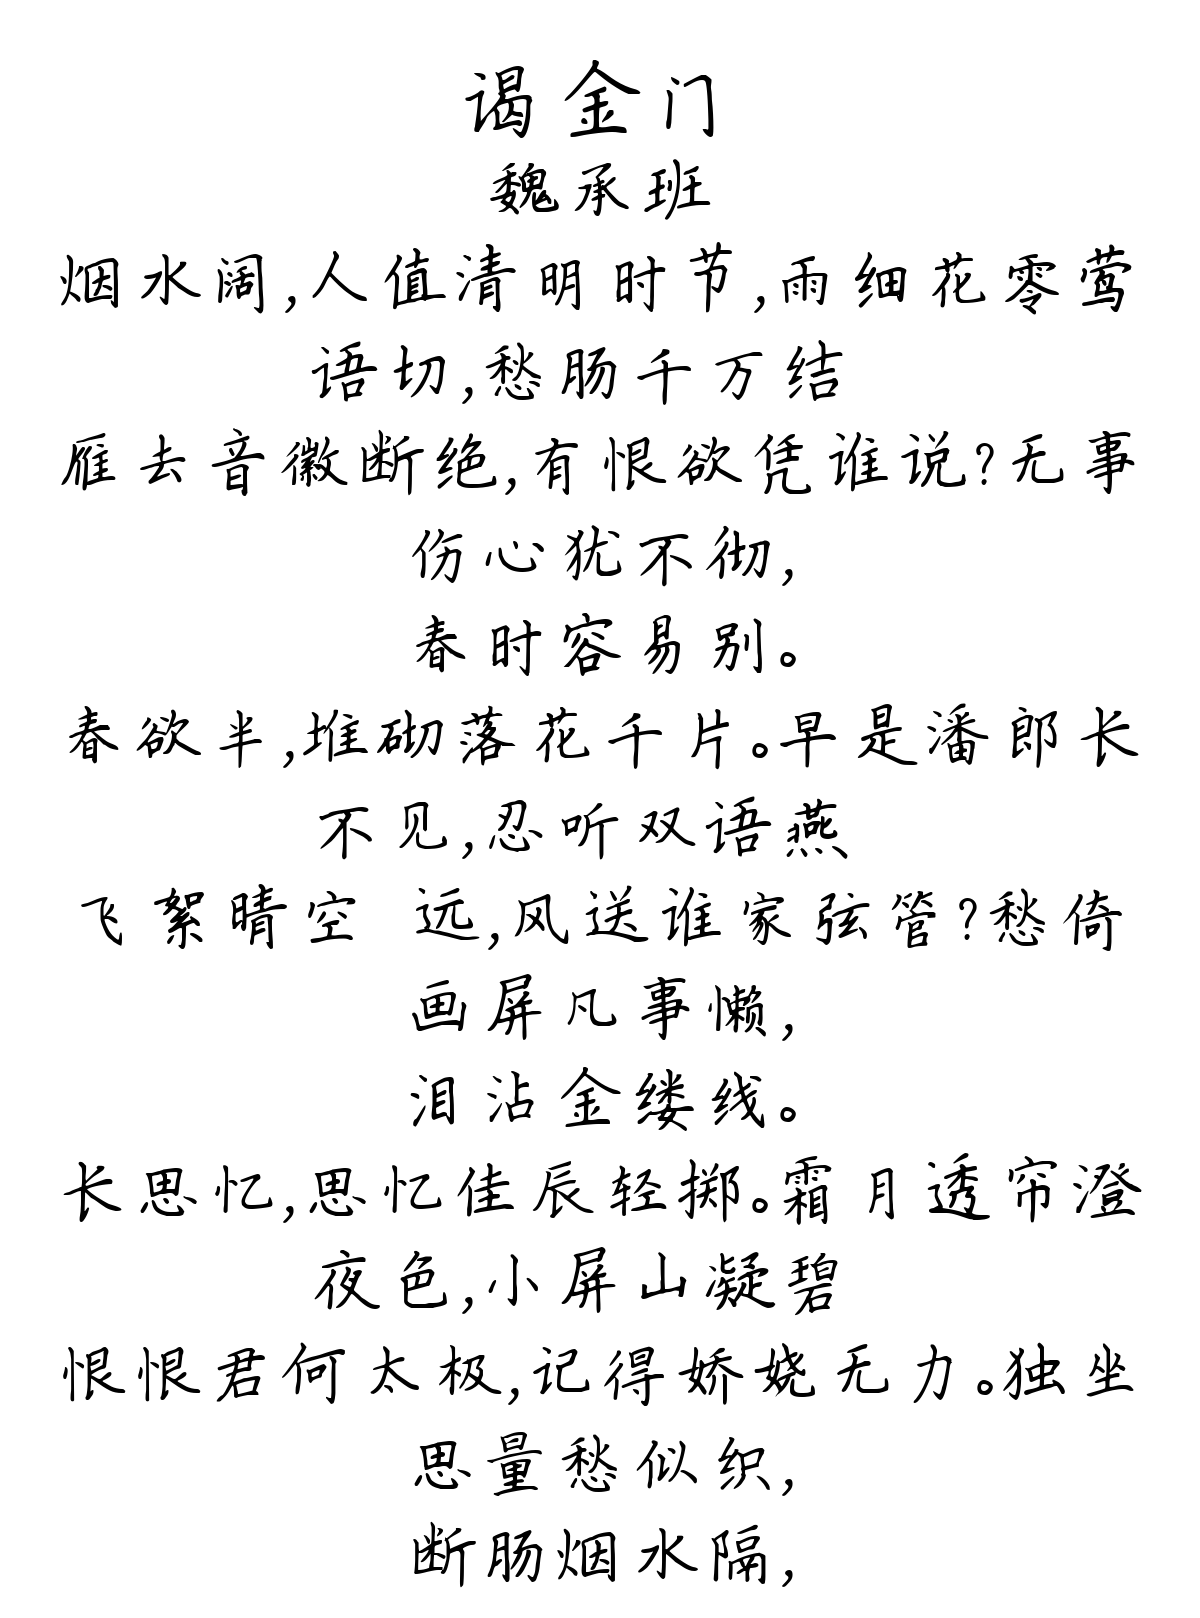 谒金门
魏承班
烟水阔,人值清明时节,雨细花零莺
语切,愁肠千万结
雁去音徽断绝,有恨欲凭谁说?无事
伤心犹不彻,
春时容易别。
春欲半,堆砌落花千片。早是潘郎长
不见,忍听双语燕
飞絮晴空 远,风送谁家弦管?愁倚
画屏凡事懒,
泪沾金缕线。
长思忆,思忆佳辰轻掷。霜月透帘澄
夜色,小屏山凝碧
恨恨君何太极,记得娇娆无力。独坐
思量愁似织,
断肠烟水隔,